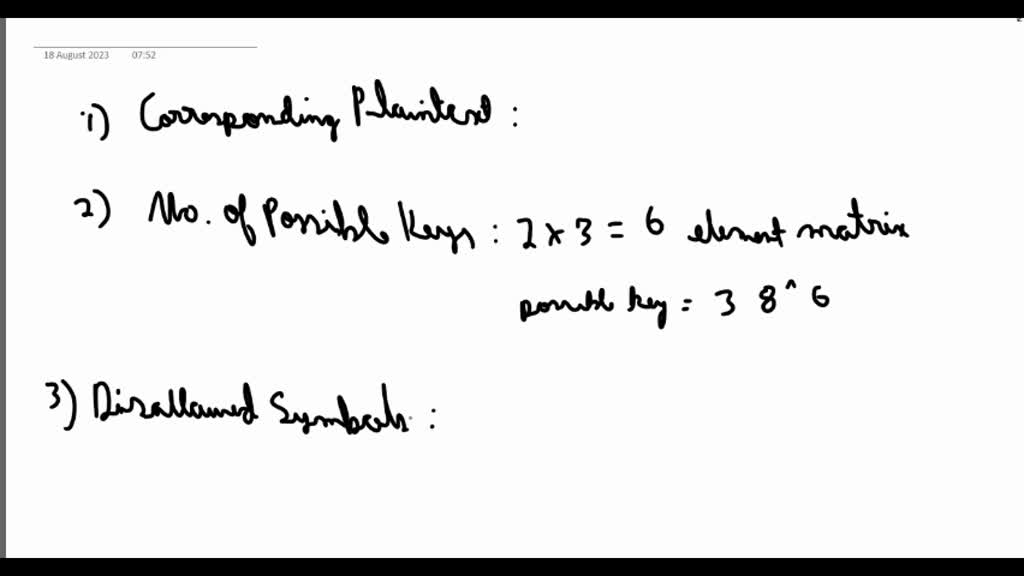 18 August 2023 07:52
1) Corresponding Plaintext :
2) No. of Possible Keys : 2 x 3 = 6 element matrix
possible key = 3 8 ^ 6
3) Disallowed Symbols :